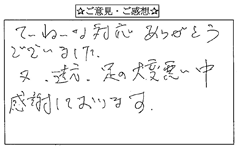 ☆ご意見・ご感想☆
てーねーな対応 ありがとう
ございました。
又、遠方、足の大変悪い中
感謝しております。